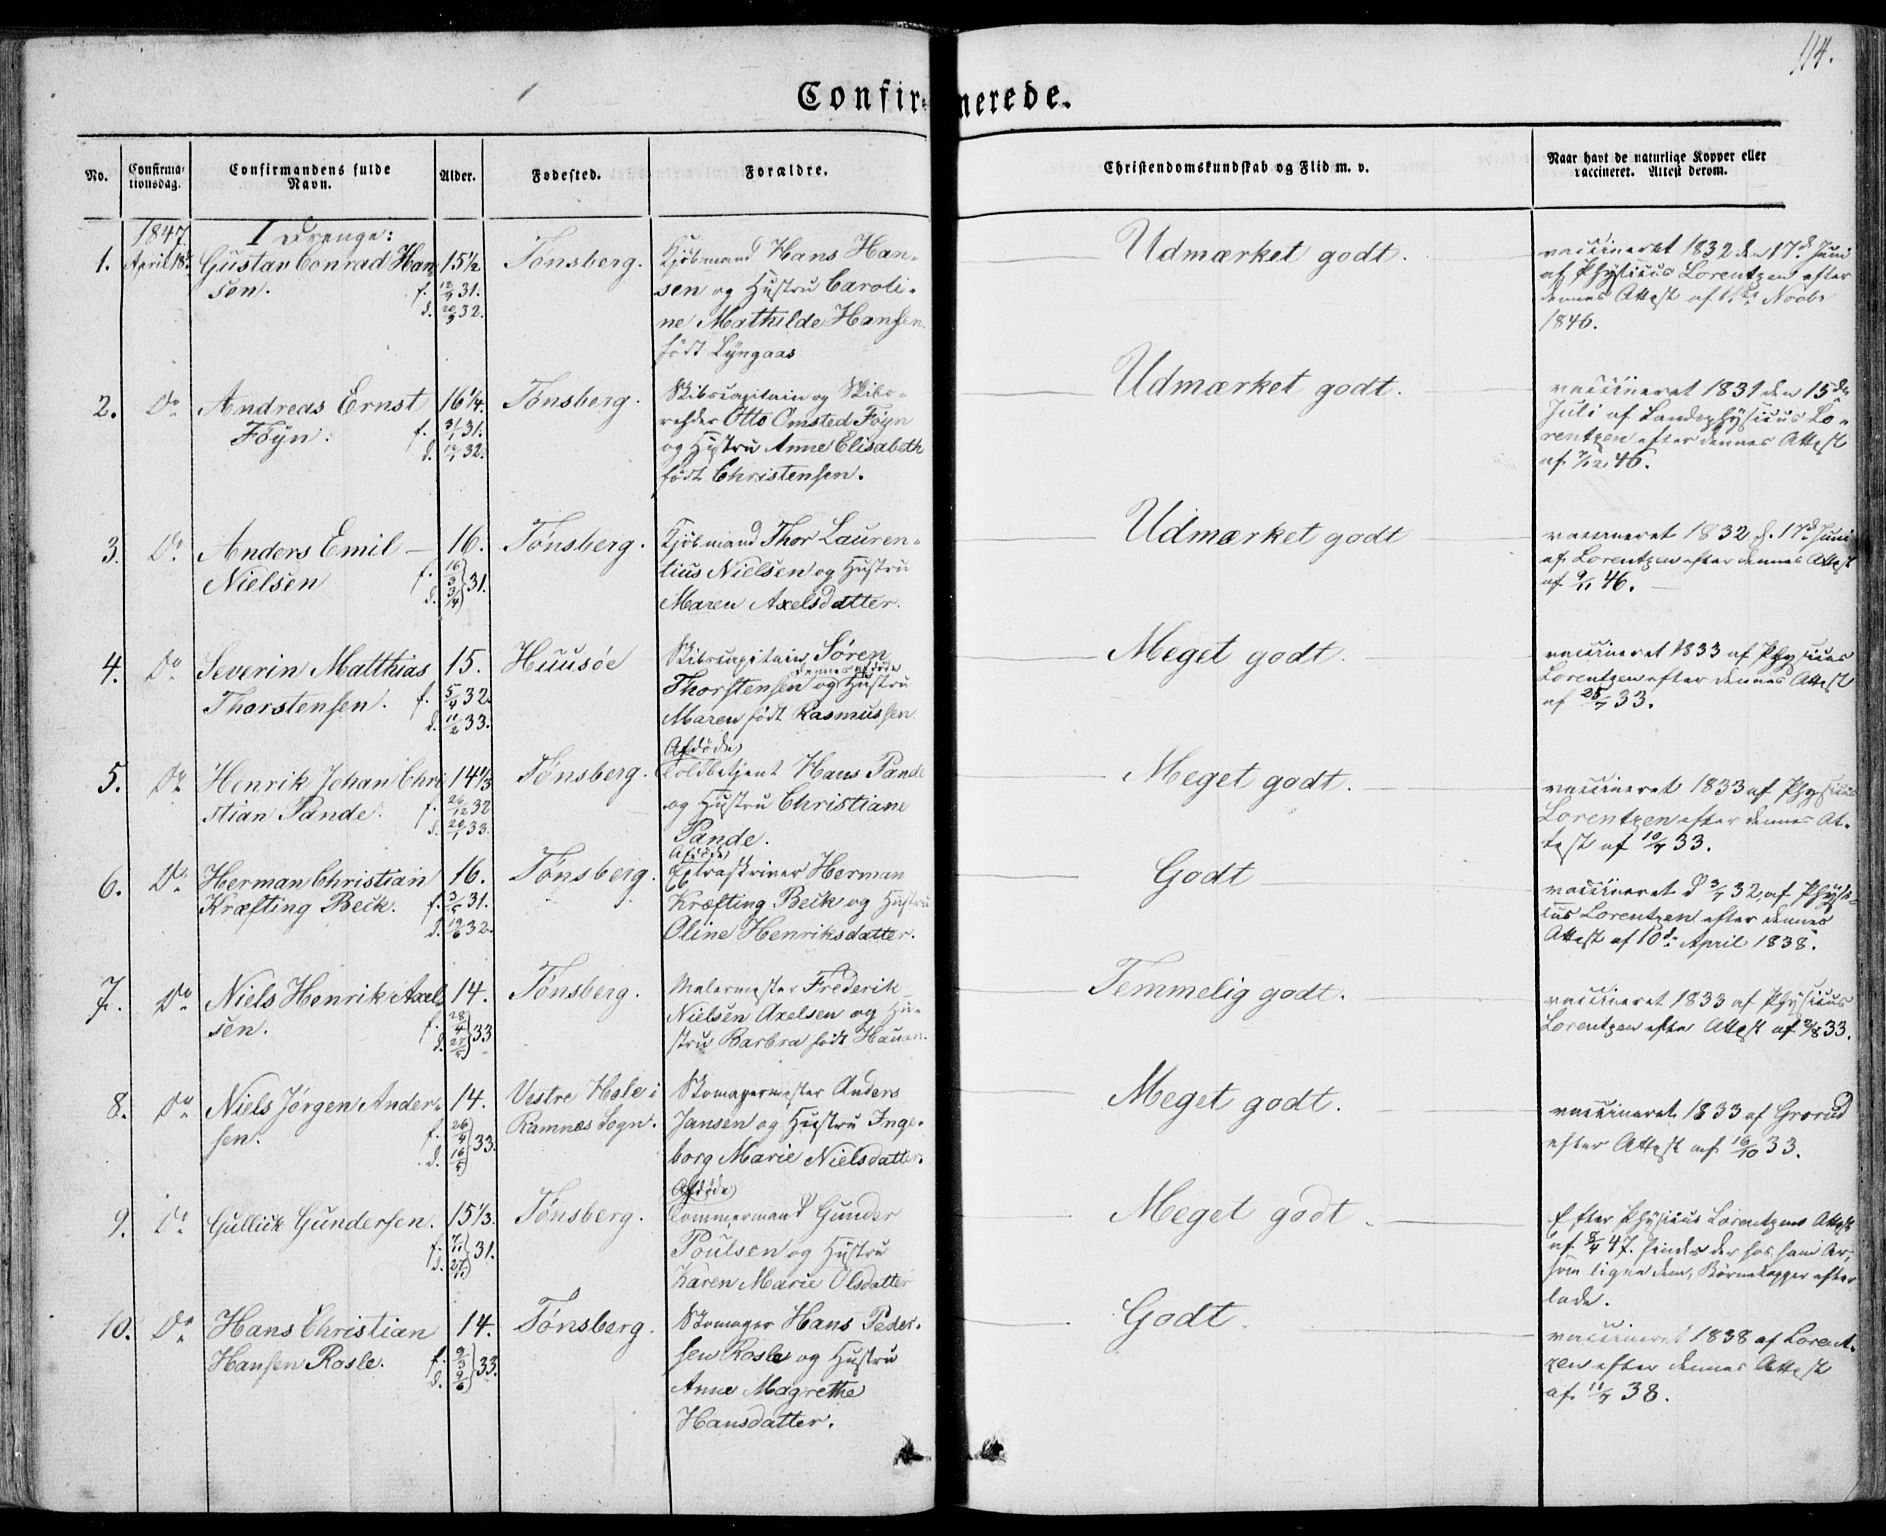 114.
Confirmerede.
No.
Confirma-
tionsdag.
Confirmandens fulde
Navn.
Alder.
Fødested.
Forældre.
Christendomskundskab og Flid m. v.
Naar havt de naturlige Kopper eller
vaccineret. Attest derom.
1847.
I Drenge:
1. April 18de Gustav Conrad Han 15½ Tønsberg. Kjøbmand Hans Han- Udmærket godt. vaccineret 1832 den 17de Juni
sen. f. 12/9 31. sen og Hustru Caroli- af Physicus Lorentzen efter
d. 20/3 32. ne Mathilde Hansen dennes Attest af Novbr
født Lÿngaas 1846.
2. Do Andreas Ernst 16¼. Tønsberg. Skibscapitain og Skibs- Udmærket godt. vacciineret 1831 den 15de
Føÿn. f. 3/1 31. rehder Otto Omsted Føyn Juli af Landphÿsicus Lo-
d. 32. og Hustru Anne Elisabeth rentzen efter dennes Attest
født Christensen. af 7/12 46.
3. Do Anders Emil 16. Tønsberg. Kjøbmand Thor Lauren- Udmærket godt vaccineret 1832 d. 17de Juni
Nielsen f. 16/3 tius Nielsen og Hustru af Lorentzen efter dennes Attest
d. 3/4 } 31. Maren Axelsdatter. af 9/11 46.
4. Do Severin Matthias 15. Huusøe Skibscapitain Søren Meget godt. vaccineret 1833 af Physicus
Thorstensen. f. 5/4 32. Thorstensen og dennes afdøde Hustru Lorentzen efter dennes Attest
d. 11/2 33. Maren født Rasmussen af 25/7 33.
5. Do Henrik Johan Chri 14⅓ Tønsberg. Afdøde Toldbetjent Hans Pande Meget godt. vaccineret 1833 af Physicus
stian Pande. f. 26/12 32 og Hustru Christiane Lorentzen efter dennes At-
d. 20/1 33. Pande. test af 10/7 33.
6. Do Herman Christian 16. Tønsberg. Afdøde Extraskriver Herman Godt vacciineret d 3/7 32, af Phÿsi-
Kræfting Beck. f. 3/5 31. Kræfting Beck og Hustru cus Lorentzen efter dennes
d. 19/6 32. Oline Henriksdatter. Attest af 10de April 1838.
7. Do Niels Henrik Axel 14. Tønsberg. Malermester Frederik Temmelig godt. vaccineret 1833 af Physicus
sen. f. 28/4 Nielsen Axelsen og Hu- Lorentzen efter Attest af 2/8 33.
d. 27/5 } 33 stru Barbra født
8. Do Niels Jørgen Ander- 14. Vestre Hole i Skomagermester Anders Meget godt. vaccineret 1833 af Grorud
sen. f. 26/4 Ramnæs Sogn. Jansen og Hustru Inge- efter Attest af 16/10 33.
d. 16/5 } 33. borg Marie Nielsdatter.
9. Do Gullick Gundersen. 15⅓. Tønsberg. Afdøde Tømmermand Gunder Meget godt. Efter Phÿsicus Lorentzens Attest
f. 7/11 } 31. Poulsen og Hustru af 8/4 47. findes der hos ham Ar,
d. 27/11 Karen Marie Olsdatter som ligne dem, Børnekopper efter
lade.
10. Do Hans Christian 14. Tønsberg. Skomager Hans Peder- Godt. vaccineret 1838 af Lorent-
Hansen Rosle. f. 9/3 sen Rosle og Hustru zen efter dennes Attest
d. 9/6 } 33. Anne Magrethe af 11/7 38.
Hansdatter.